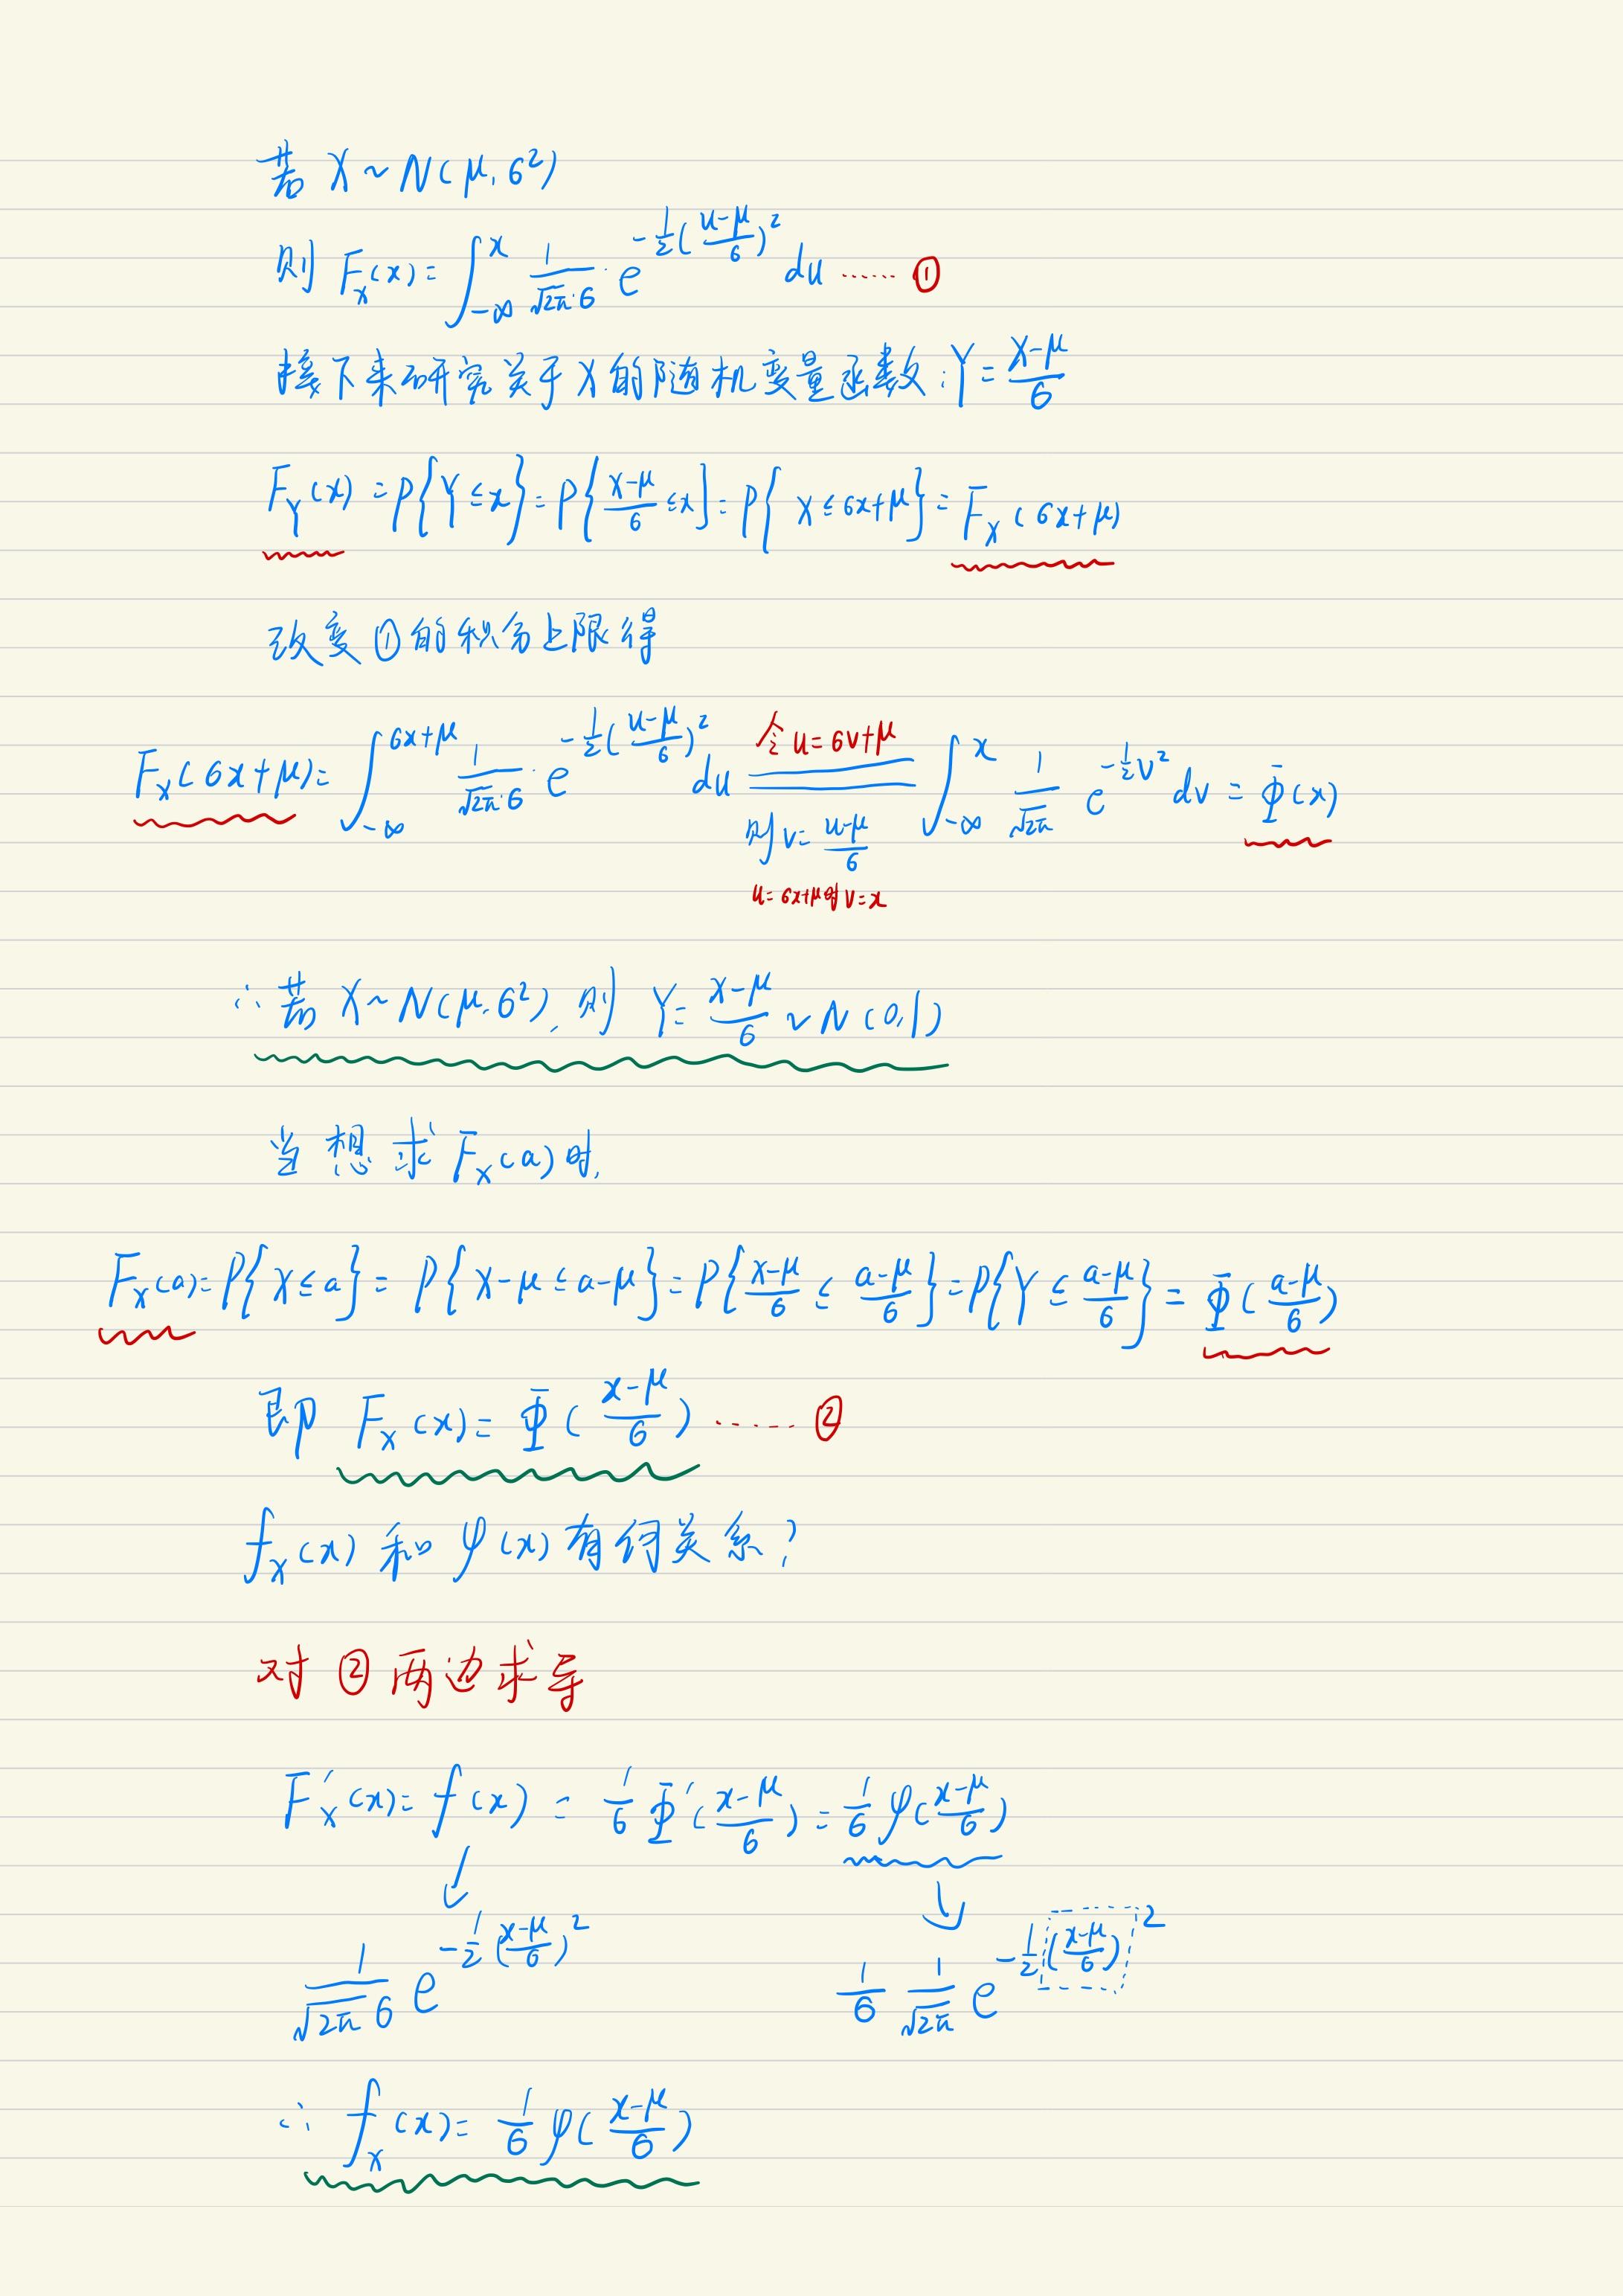 若 X ~ N(μ, σ²)
则 F_X(x) = ∫_{-∞}^{x} \frac{1}{\sqrt{2π}·σ} · e^{-\frac{1}{2}(\frac{u-μ}{σ})^2} du ...... ①
接下来研究关于X的随机变量函数: Y = \frac{X-μ}{σ}
F_Y(x) = P{Y ≤ x} = P{\frac{X-μ}{σ} ≤ x} = P{X ≤ σx+μ} = F_X(σx+μ)
改变①的积分上限得
F_X(σx+μ) = ∫_{-∞}^{σx+μ} \frac{1}{\sqrt{2π}·σ} · e^{-\frac{1}{2}(\frac{u-μ}{σ})^2} du \xlongequal[则 v=\frac{u-μ}{σ}]{令 u=σv+μ} ∫_{-∞}^{x} \frac{1}{\sqrt{2π}} e^{-\frac{1}{2}v^2} dv = Φ(x)
u=σx+μ时 v=x
∴ 若 X ~ N(μ, σ²), 则 Y = \frac{X-μ}{σ} ~ N(0,1)
当想求 F_X(a) 时,
F_X(a) = P{X ≤ a} = P{X-μ ≤ a-μ} = P{\frac{X-μ}{σ} ≤ \frac{a-μ}{σ}} = P{Y ≤ \frac{a-μ}{σ}} = Φ(\frac{a-μ}{σ})
即 F_X(x) = Φ(\frac{x-μ}{σ}) ...... ②
f_X(x) 和 φ(x) 有何关系?
对②两边求导
F'_X(x) = f(x) = \frac{1}{σ} Φ'(\frac{x-μ}{σ}) = \frac{1}{σ} φ(\frac{x-μ}{σ})
\frac{1}{\sqrt{2π} σ} e^{-\frac{1}{2}(\frac{x-μ}{σ})^2} \frac{1}{σ} \frac{1}{\sqrt{2π}} e^{-\frac{1}{2}(\frac{x-μ}{σ})^2}
∴ f_X(x) = \frac{1}{σ} φ(\frac{x-μ}{σ})